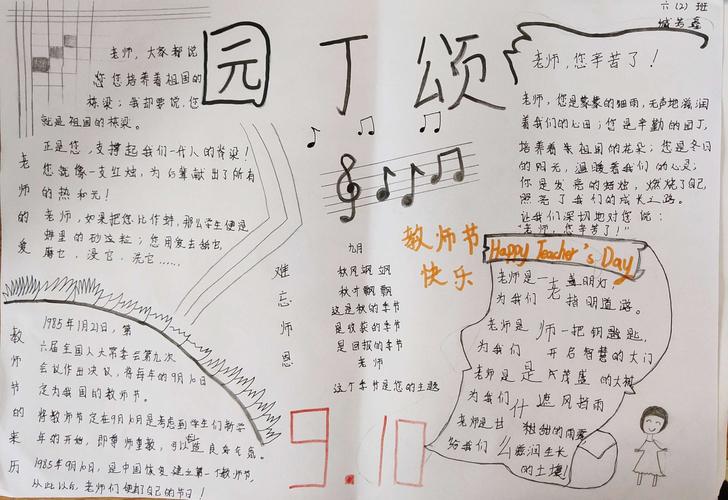 六(2)班
园丁颂
老师，大家都说
您培养着祖国的
栋梁；我却要说，您
就是祖国的栋梁。
正是您，支撑起我们一代人的脊梁！
您就像一支红烛，为后辈献出了所有
的热和光！
老师，如果把您比作蚌，那么学生便是
蚌里的砂粒；您用爱去舐它，
磨它，浸它，洗它……
老师的爱
老师，您辛苦了！
老师，您是蒙蒙的细雨，无声地滋润
着我们的心田；您是辛勤的园丁，
培养着朱祖国的花朵；您是冬日
的阳光，温暖着我们的心灵；
你是发亮的蜡烛，燃烧了自己
照亮了我们的成长之路。
让我们深切地对您说：
"老师，您辛苦了！"
教师节
快乐
Happy Teacher's Day
难忘师恩
九月
秋风飒飒
秋叶飘飘
这是秋的季节
是收获的季节
是回报的季节
老师
这个季节是您的主题
9.10
教师节的来历
1985年1月21日，第
六届全国人大常委会第九次
会议作出决议，将每年的9月10日
定为我国的教师节。
将教师节定在9月10日是考虑到学生们新学
年的开始，即尊师重教，可以造良好气氛。
1985年9月10日，是中国恢复建立第一个教师节，
从此以后，老师们便有了自己的节日！
老师是一盏明灯，
为我们指明道路。
老师是一把钥匙，
为我们开启智慧的大门
老师是茂盛的大树
为我们遮风挡雨
老师是甘甜甜的雨露
给我们滋润生长
的土壤！
老师是什么